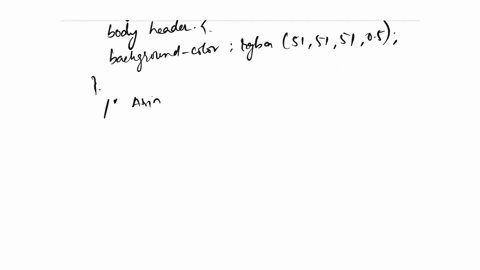 body header {
background-color : rgba (51, 51, 51, 0.5);
}
/* Asin